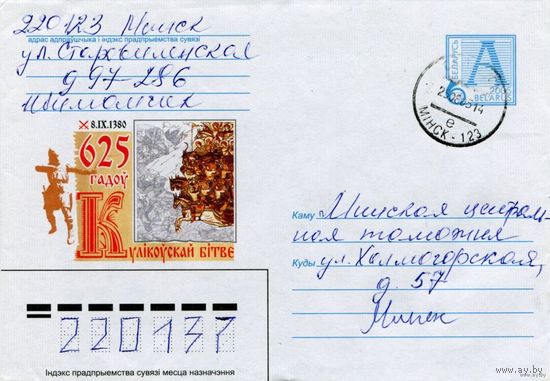 220123 Минск
адрас адпраўшчыка і індэкс прадпрыемства сувязі
ул. Старовиленская
д 97-286
БЕЛАРУСЬ
А
BELARUS
МІНСК - 123
е
8.IX.1380
625
гадоў
Кулікоўскай бітве
Каму Минская централь-
ная таможня
Куды ул. Холмогорская,
д. 57
Минск
220137
Індэкс прадпрыемства сувязі месца назначэння
https://www.ay.by